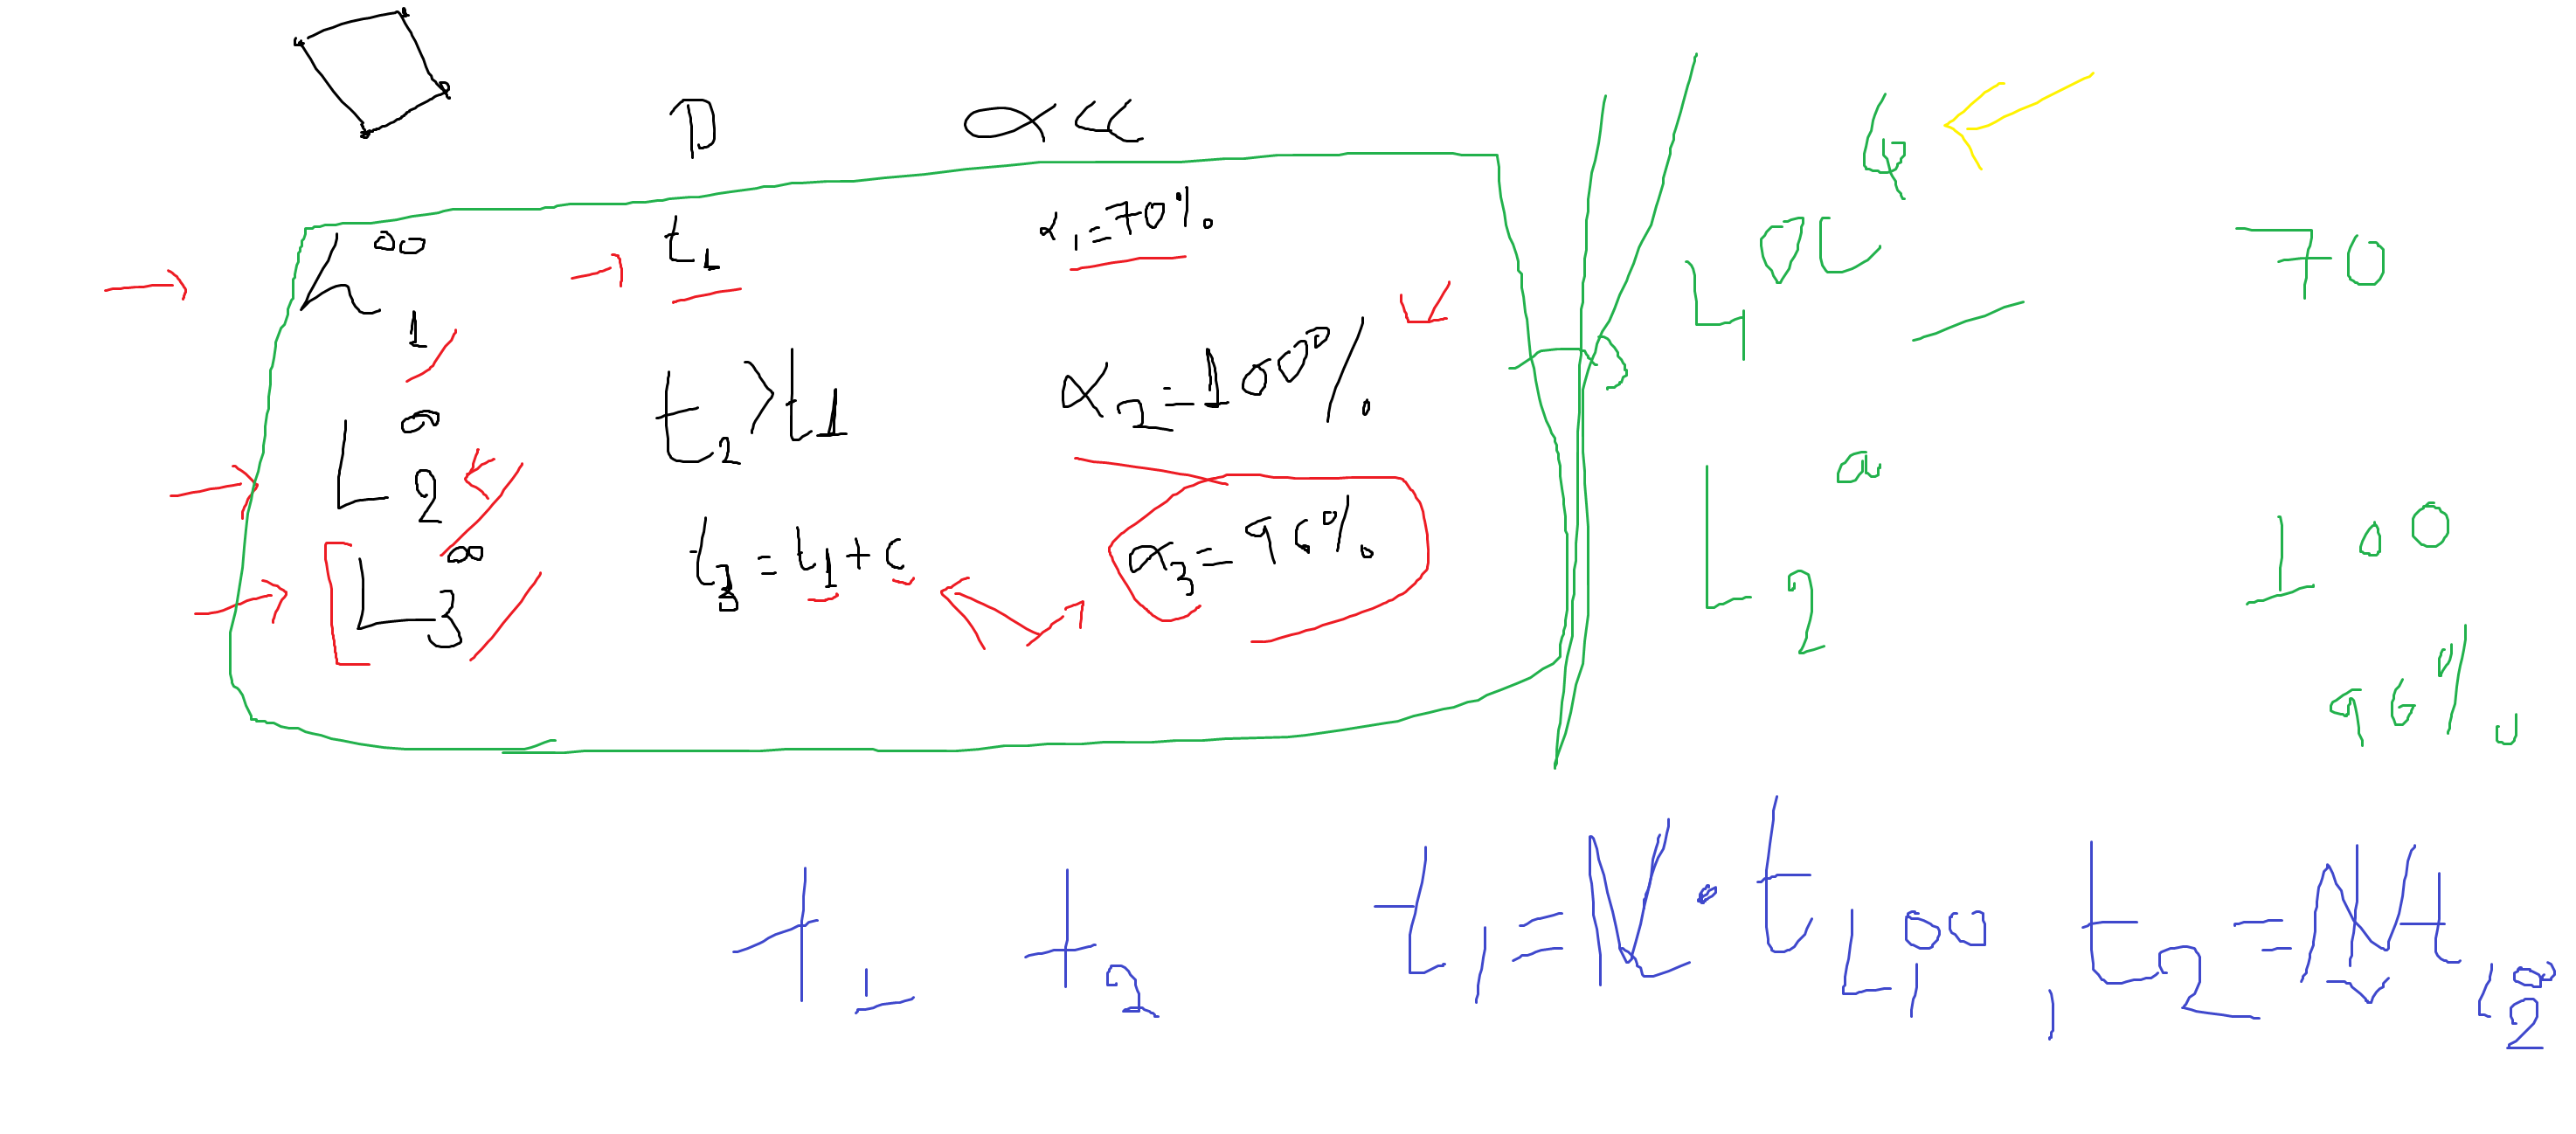 D α
L₁^∞ t₁ α₁=70%
L₂^∞ t₂>t₁ α₂=100%
L₃^∞ t₃=t₁+c α₃=96%
70
L₂ 100
96%
t₁ t₂ t₁=N·t L₁^∞, t₂=Nt L₂^∞